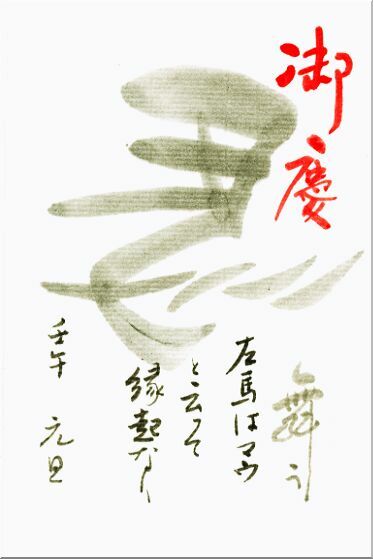 御慶
馬
舞う
左馬はマウ
と云って
縁起なり
壬午 元旦